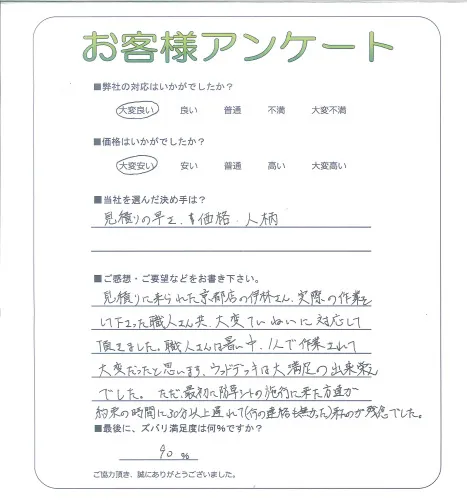 お客様アンケート
■弊社の対応はいかがでしたか？
大変良い 良い 普通 不満 大変不満
■価格はいかがでしたか？
大変安い 安い 普通 高い 大変高い
■当社を選んだ決め手は？
見積りの早さ、価格、人柄
■ご感想・ご要望などをお書き下さい。
見積りに来られた京都店の伊林さん、実際の作業を
して下さった職人さん共、大変ていねいに対応して
頂きました。職人さんは暑い中、1人で作業されて
大変だったと思います。ウッドデッキは大満足の出来栄え
でした。ただ、最初に防草シートの施行に来た方達が
約束の時間に30分以上遅れて(何の連絡も無かった)来たのが残念でした。
■最後に、ズバリ満足度は何％ですか？
90 %
ご協力頂き、誠にありがとうございました。